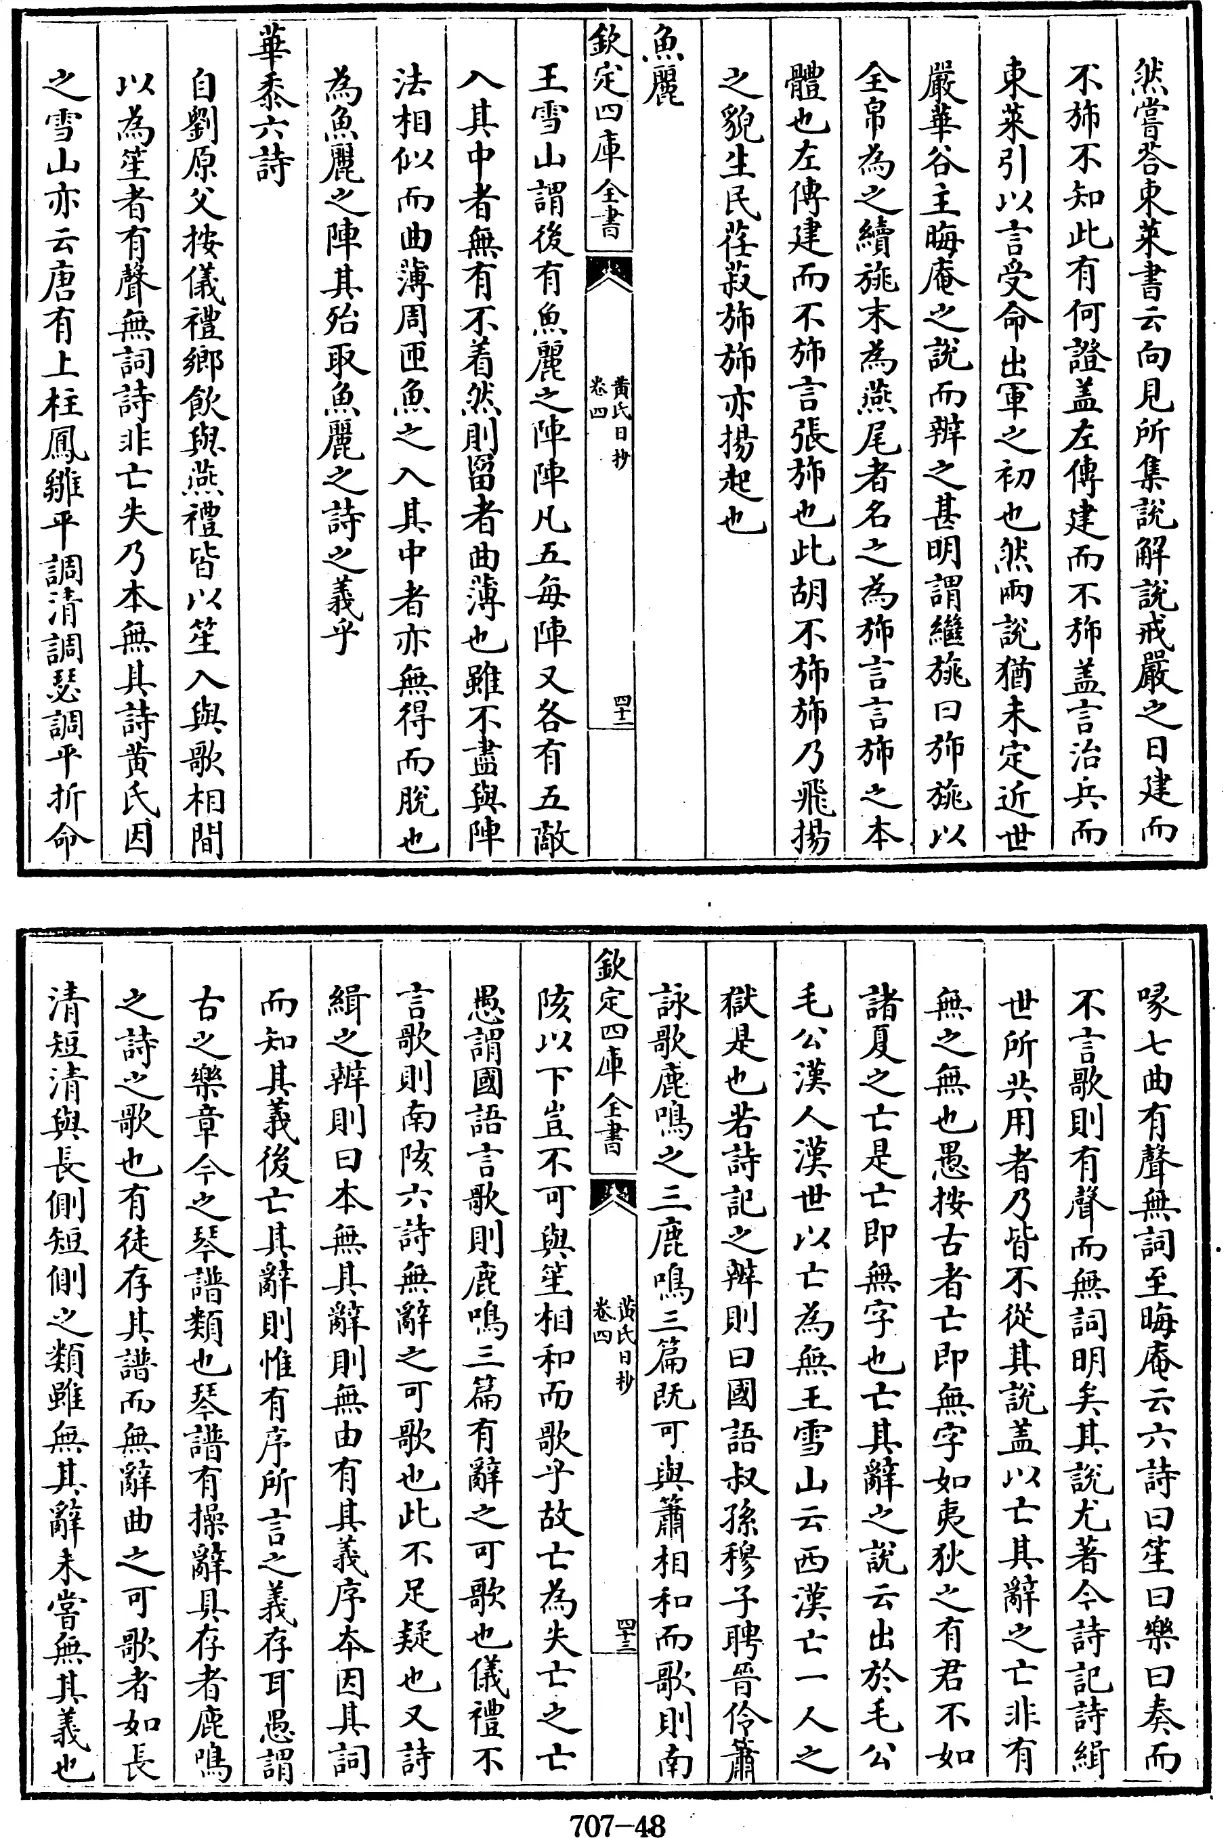 然嘗荅東萊書云向見所集說解說戒嚴之日建而
不斾不知此有何證盖左傳建而不斾盖言治兵而
東萊引以言受命出軍之初也然兩說猶未定近世
嚴華谷主晦庵之說而辨之甚明謂繼旐曰斾旐以
全帛為之續旐末為燕尾者名之為斾言言斾之本
體也左傳建而不斾言張斾也此胡不斾斾乃飛揚
之貌生民荏菽斾斾亦揚起也
魚麗
欽定四庫全書
黄氏日抄
卷四
四十二
王雪山謂後有魚麗之陣陣凡五每陣又各有五敵
入其中者無有不着然則罶者曲薄也雖不盡與陣
法相似而曲薄周匝魚之入其中者亦無得而脫也
為魚麗之陣其殆取魚麗之詩之義乎
華黍六詩
自劉原父按儀禮鄉飲與燕禮皆以笙入與歌相間
以為笙者有聲無詞詩非亡失乃本無其詩黄氏因
之雪山亦云唐有上柱鳳雛平調清調瑟調平折命
喙七曲有聲無詞至晦庵云六詩曰笙曰樂曰奏而
不言歌則有聲而無詞明矣其說尤著今詩記詩緝
世所共用者乃皆不從其說盖以亡其辭之亡非有
無之無也愚按古者亡即無字如夷狄之有君不如
諸夏之亡是亡即無字也亡其辭之說云出於毛公
毛公漢人漢世以亡為無王雪山云西漢亡一人之
獄是也若詩記之辨則曰國語叔孫穆子聘晉伶簫
詠歌鹿鳴之三鹿鳴三篇既可與簫相和而歌則南
欽定四庫全書
黄氏日抄
卷四
四十三
陔以下豈不可與笙相和而歌乎故亡為失亡之亡
愚謂國語言歌則鹿鳴三篇有辭之可歌也儀禮不
言歌則南陔六詩無辭之可歌也此不足疑也又詩
緝之辨則曰本無其辭則無由有其義序本因其詞
而知其義後亡其辭則惟有序所言之義存耳愚謂
古之樂章今之琴譜類也琴譜有操辭具存者鹿鳴
之詩之歌也有徒存其譜而無辭曲之可歌者如長
清短清與長側短側之類雖無其辭未嘗無其義也
707-48